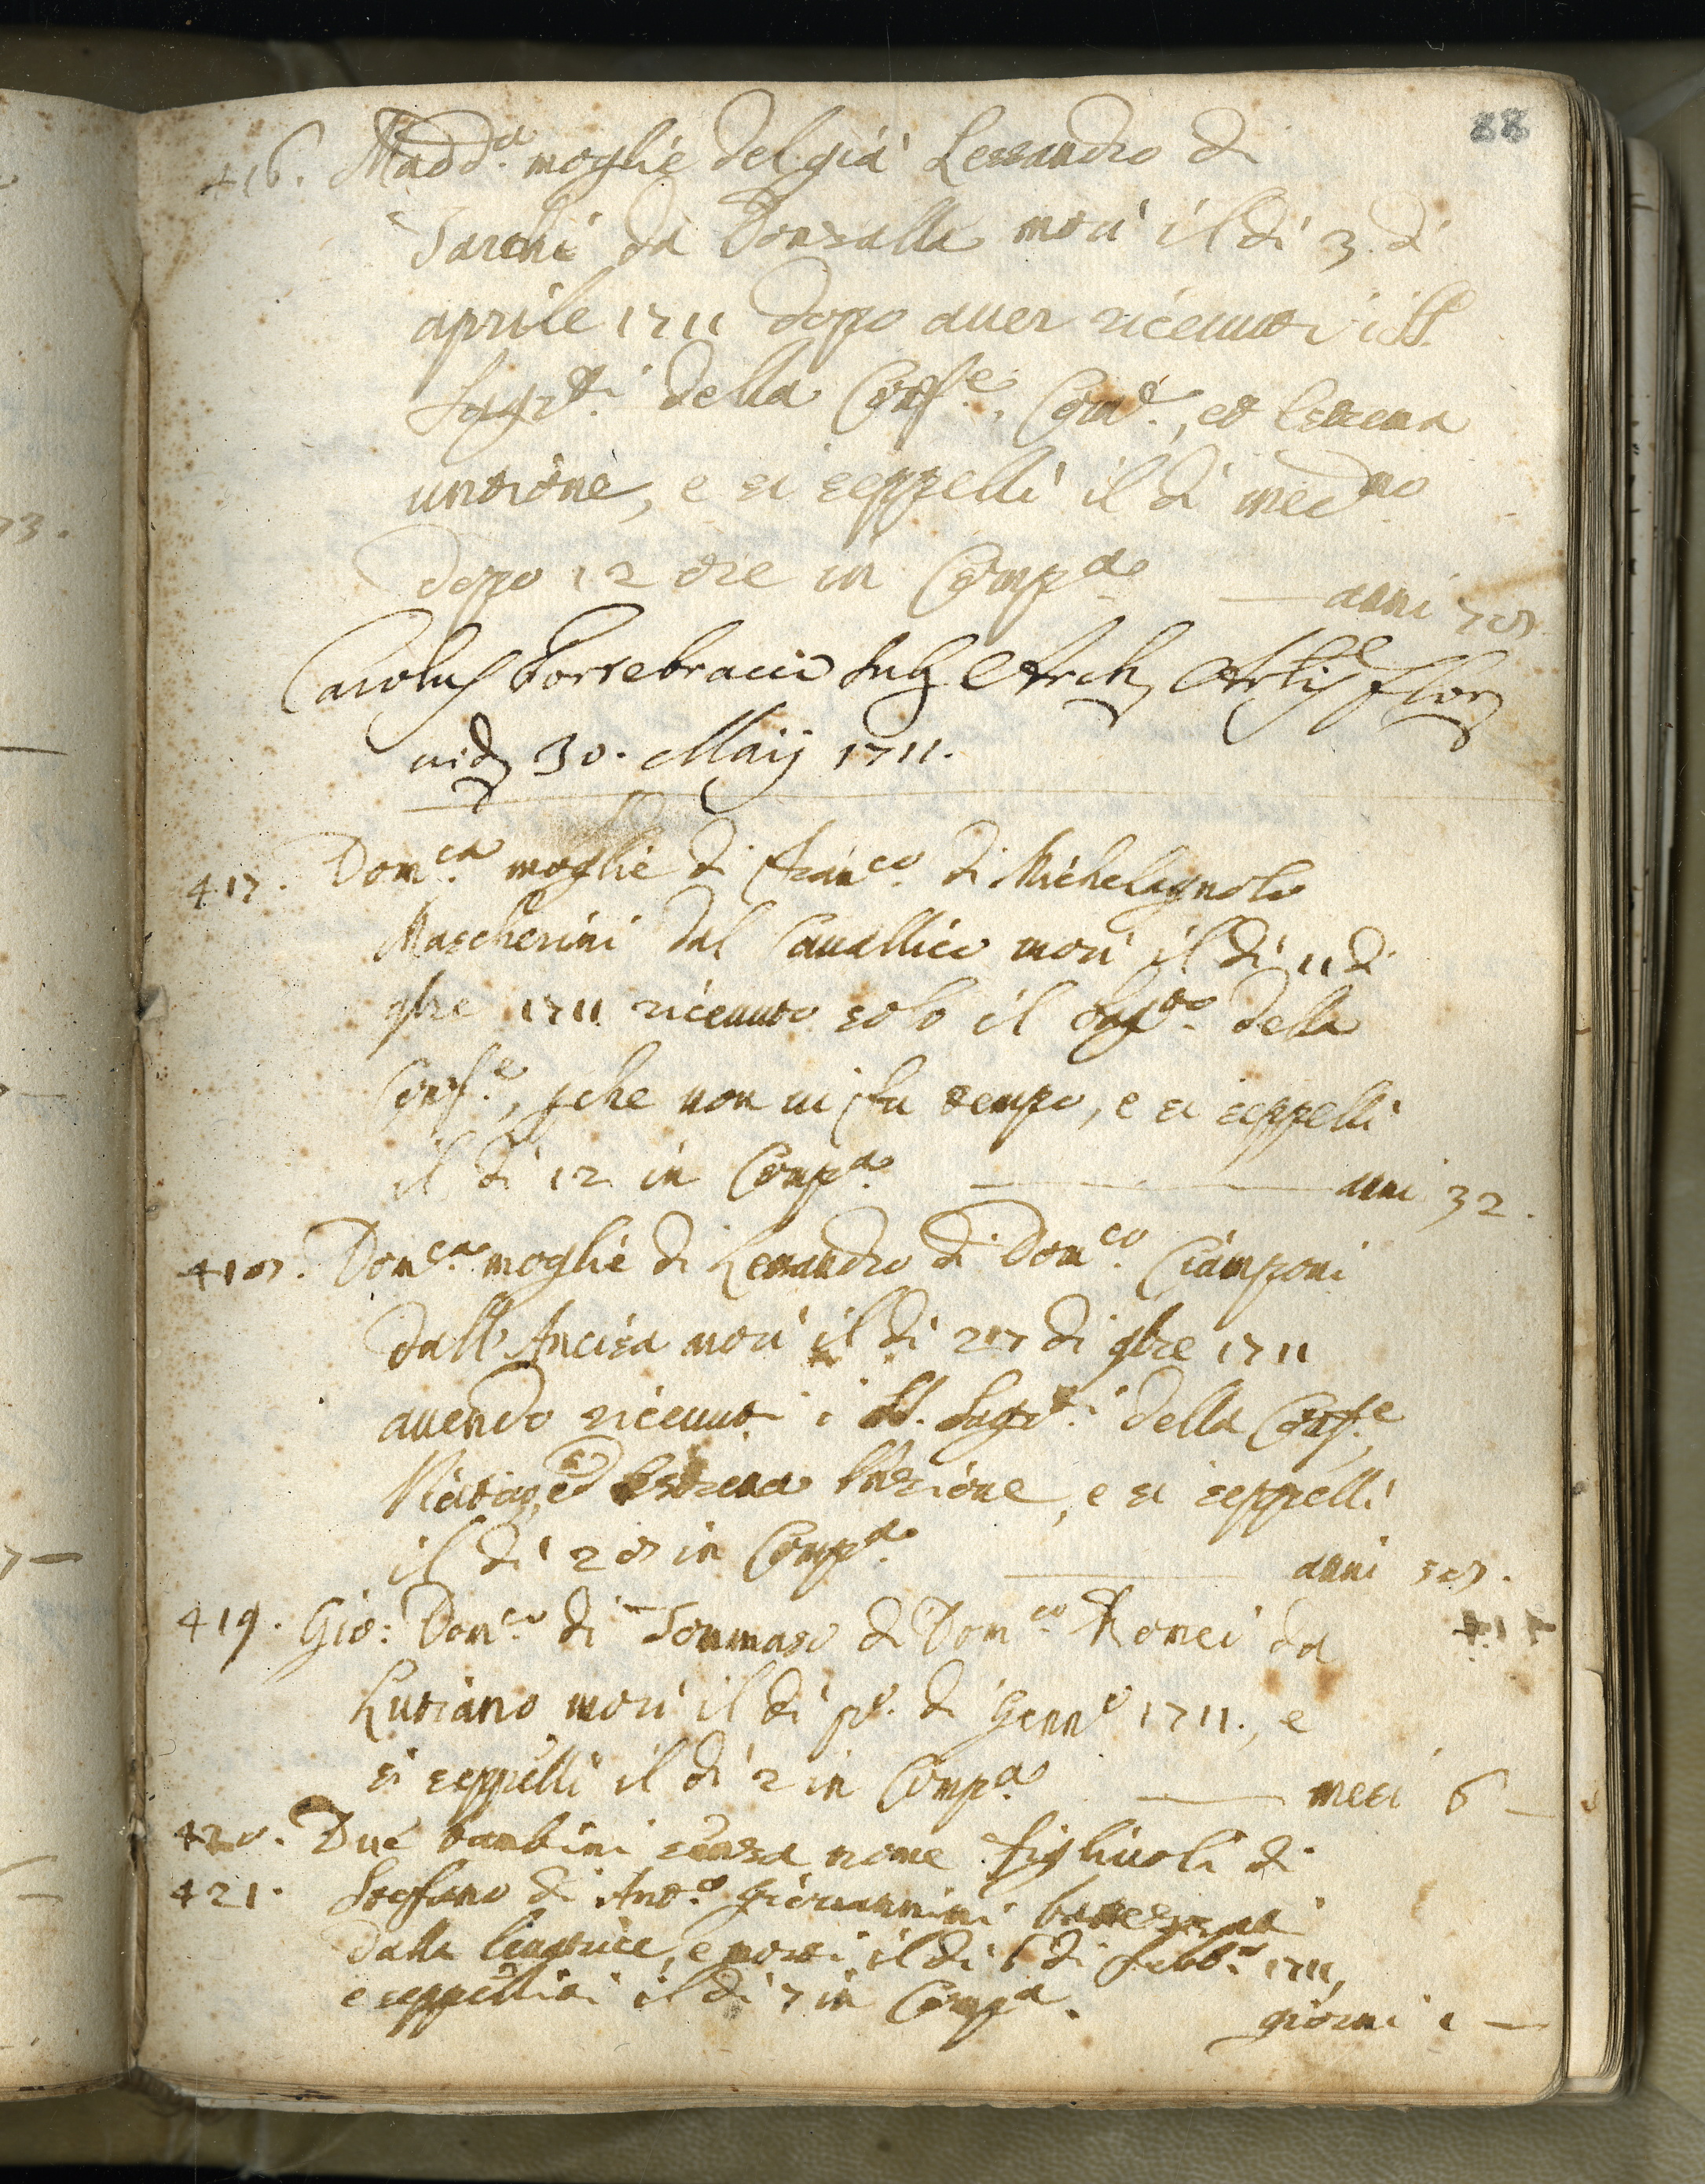 88
416. Madd.a moglie del già Lessandro di
Tarchi da Donzalla morì il dì 3 di
aprile 1711 dopo auer riceuuti i SS.
Sagr.ti della Conf.e, Com.e, et Estrema
untione, e si seppellì il dì med.mo
dopo 12 ore in Comp.a — anni 78
Carolus Fortebracci Sub Arch. Artis Flor.
uid. 30. Maij 1711.
417. Dom.ca moglie di Fran.co di Michelagnolo
Mascherini dal Cauallico morì il dì 11 di
9bre 1711 riceuuto solo il Sag.to della
Conf.e, p che non ui fu tempo, e si seppellì
il dì 12 in Comp.a — anni 32.
418. Dom.ca moglie di Lessandro di Dom.co Ciamponi
dall'Ancisa morì il dì 27 di 9bre 1711
auendo riceuuti i SS. Sagr.ti della Conf.e
Viatico, ed Estrema Unzione, e si seppellì
il dì 28 in Comp.a — anni 58.
419. Gio: Dom.co di Tommaso di Dom.co Ronci da
Lutiano morì il dì p.o di Genn.o 1711., e
si seppellì il dì 2 in Comp.a — mesi 6 —
420. Due bambini senza nome figliuoli di
421. Steffano di Ant.o Giouannini battezzati
dalla leuatrice, e morti il dì 6 di Febb.o 1711,
e seppelliti il dì 7 in Comp.a. giorni 1 —